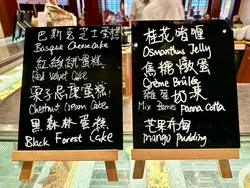 巴斯克芝士蛋糕
Basque Cheese Cake
紅絲絨蛋糕
Red Velvet Cake
栗子忌廉蛋糕
Chestnut Cream Cake
黑森林蛋糕
Black Forest Cake
桂花啫喱
Osmanthus Jelly
焦糖燉蛋
Crème Brûlée
雜莓奶凍
Mix Berries Panna Cotta
芒果布甸
Mango Pudding